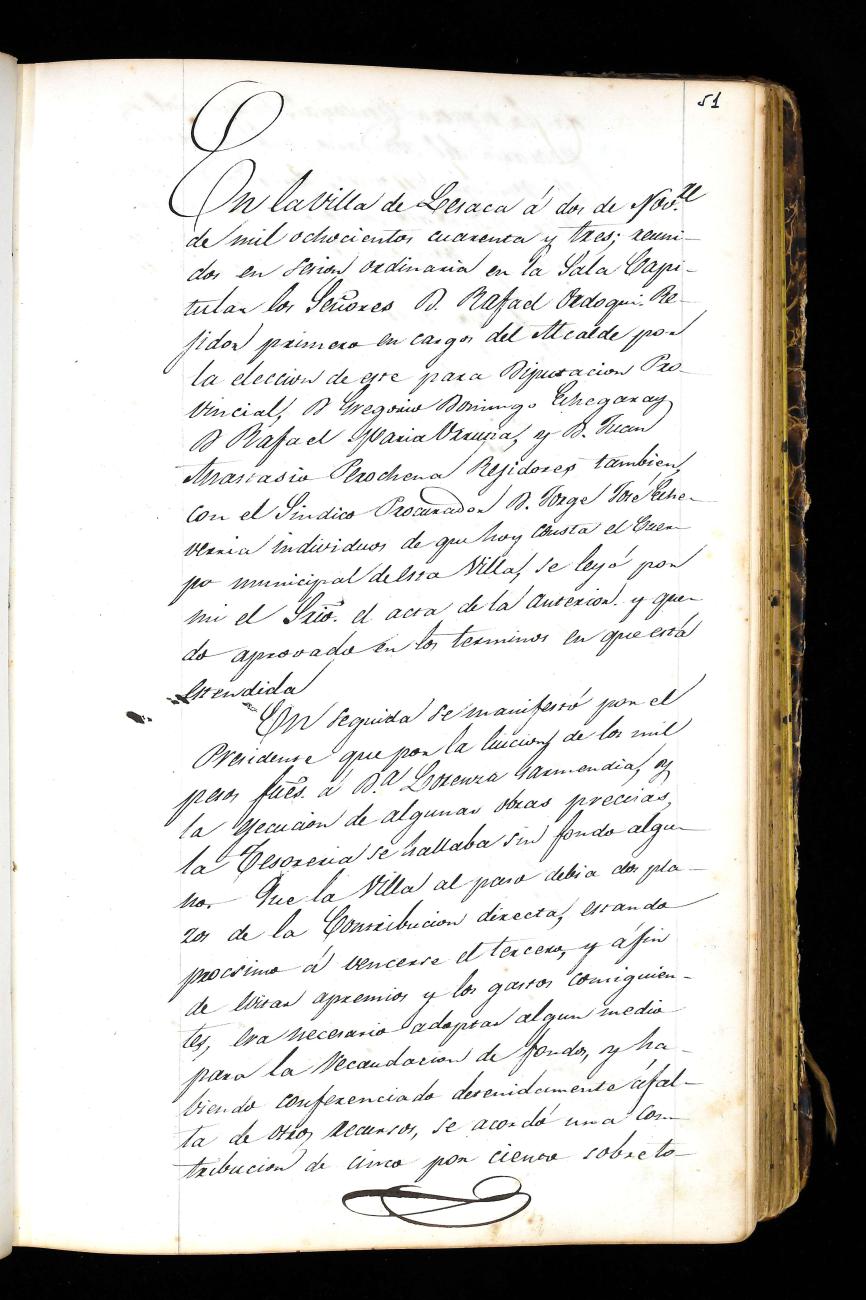 51
En la Villa de Lesaca á dos de Nov.re
de mil ochocientos cuarenta y tres; reuni-
dos en sesion ordinaria en la Sala Capi-
tular los Señores D. Rafael Ordoqui Re-
jidor primero en cargos del Alcalde por
la eleccion de este para Diputacion Pro-
vincial, D Gregorio Domingo Echegaray
D Rafael Maria y D. Juan
Anastasio Perochena Rejidores tambien,
con el Sindico Procurador D. Jorge José Eche-
verria individuos de que hoy consta el Cuer-
po municipal de essa Villa, se leyó por
mi el Srio. el acta de la anterior y que-
do aprovado en los terminos en que está
estendida
En seguida se manifestó por el
Presidente que por la luicion de los mil
pesos fũes. á D.a Lorenza Sarmendia, y
la yecucion de algunas obras precisas,
la Tesoreria se hallaba sin fondo algu-
no. Que la Villa al paso debia dos pla-
zos de la Contribucion directa, estando
procsimo á vencerse el tercero, y á fin
de evitar apremios y los gastos consiguien-
tes, era necesario adoptar algun medio
para la recaudacion de fondos, y ha-
viendo conferenciado detenidamente á fal-
ta de otros recursos, se acordó una con-
tribucion de cinco por ciento sobre to-